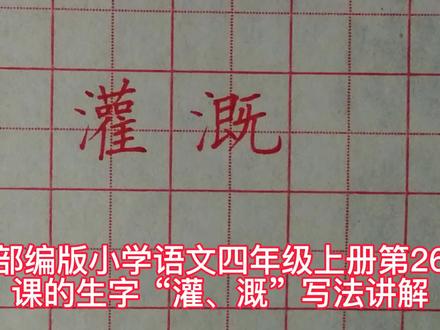 灌 溉
部编版小学语文四年级上册第26
课的生字“灌、溉”写法讲解